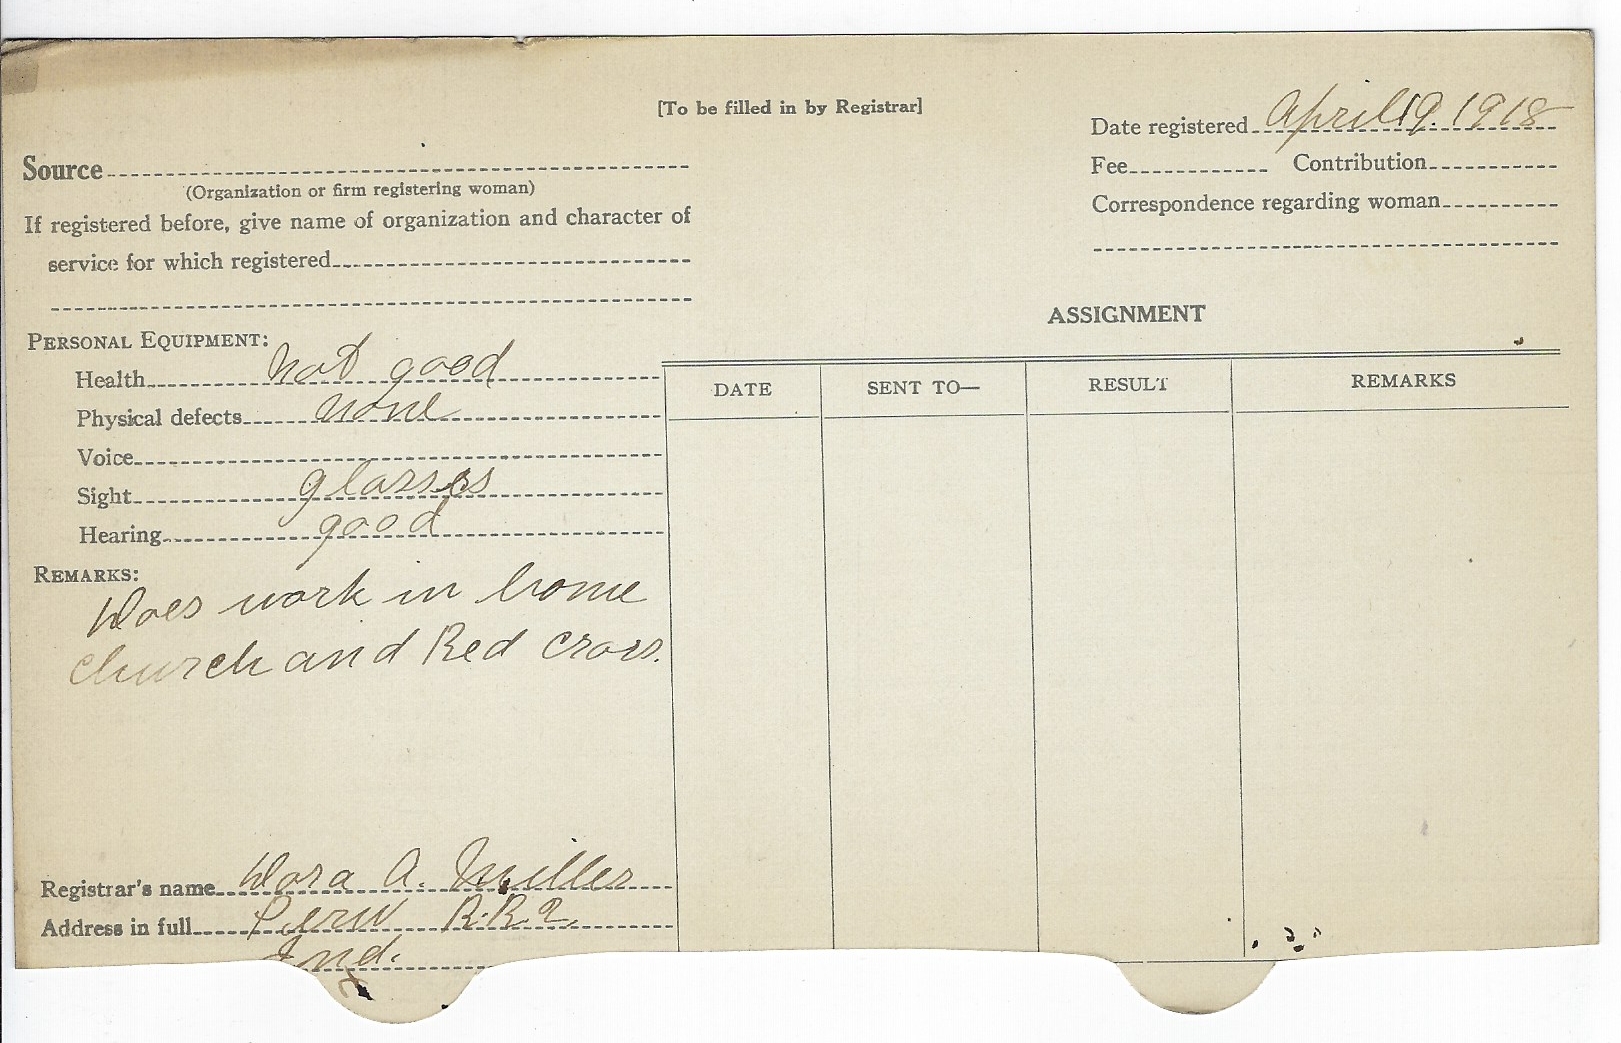 [To be filled in by Registrar]
Date registered April 19. 1918
Fee Contribution
Correspondence regarding woman
Source
(Organization or firm registering woman)
If registered before, give name of organization and character of
service for which registered
ASSIGNMENT
PERSONAL EQUIPMENT:
Health not good
Physical defects none
Voice
Sight glasses
Hearing good
REMARKS:
Does work in home
church and Red cross.
DATE SENT TO— RESULT REMARKS
Registrar's name Dora A. Miller
Address in full Peru R.R.2.
Ind.